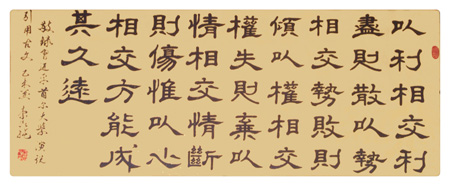 以利相交利
盡則散以勢
相交勢敗則
傾以權相交
權失則棄以
情相交情斷
則傷惟以心
相交方能成
其久遠
首尔大學演說
引用古文 乙未